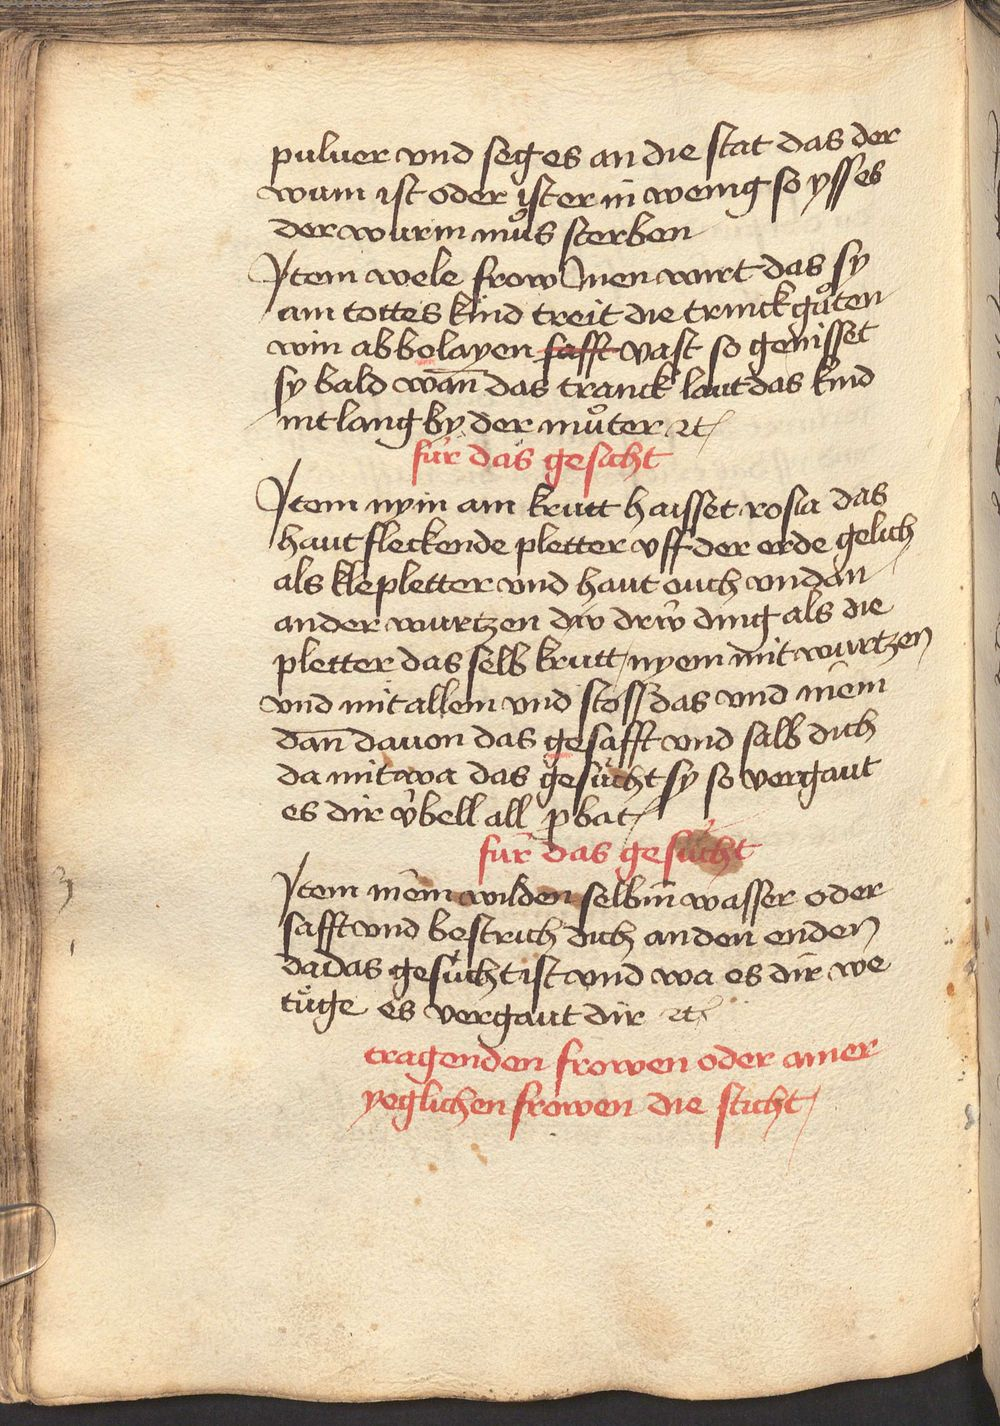 puluer vnd seg es an die stat das der
wum ist oder ist er in wenig so yss es
der wurm mus̊ sterben
Item wele frow Inen wurt das sy
ain tottes kind treit die trinck gůten
win abbolayen safft vast so genisset
sy bald wan̄ das tranck laut das kind
nit lang by der můter ꝛc
für das gesicht
Item nym ain krutt haisset rosia das
haut fleckende pletter vff der erde gelich
als klepletter vnd haut ouch vndan
ander wurtzen diw driw ding als die
pletter das selb krutt nyem mit wurtzen
vnd mit allem vnd stoss das vnd niem
dan̄ dauon das gesafft vnd salb dich
da mit wa das gesücht sy so vergaut
es dir übell all pbat
für das gesücht
Item niem wilden selbin wasser oder
safft vnd bestrich dich an den enden
da das gesücht ist vnd wa es dir we
tüge es vergaut dir ꝛc
tragenden frowen oder ainer
yeglichen frowen die sticht